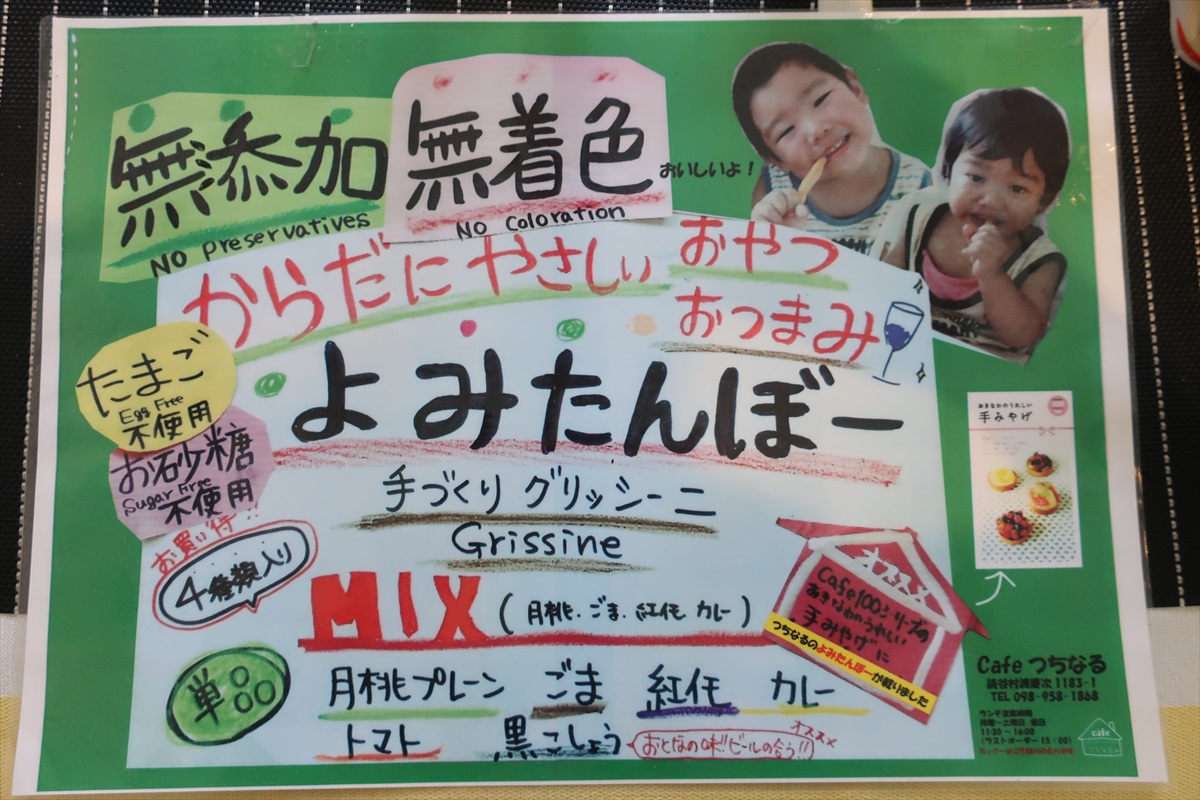 無添加
No Preservatives
無着色
No Coloration
おいしいよ!
からだにやさしい おやつ
おつまみ
たまご
Egg Free
不使用
お砂糖
Sugar Free
不使用
よみたんぼー
手づくり グリッシーニ
Grissine
お買い得!!
4種類入り
MIX (月桃.ごま.紅芋.カレー)
単品
月桃プレーン ごま 紅芋 カレー
トマト 黒こしょう
オススメ
おとなの味!!ビールの合う!!
オススメ
Cafe100シリーズの
おきなわのうれしい
手みやげに
つちなるのよみたんぼーが載りました
おきなわのうれしい
手みやげ
Cafe つちなる
読谷村渡慶次 1183-1
TEL 098-958-1868
ランチ営業時間
月曜~土曜日 祝日
11:30~16:00
(ラストオーダー 15:00)
cafe